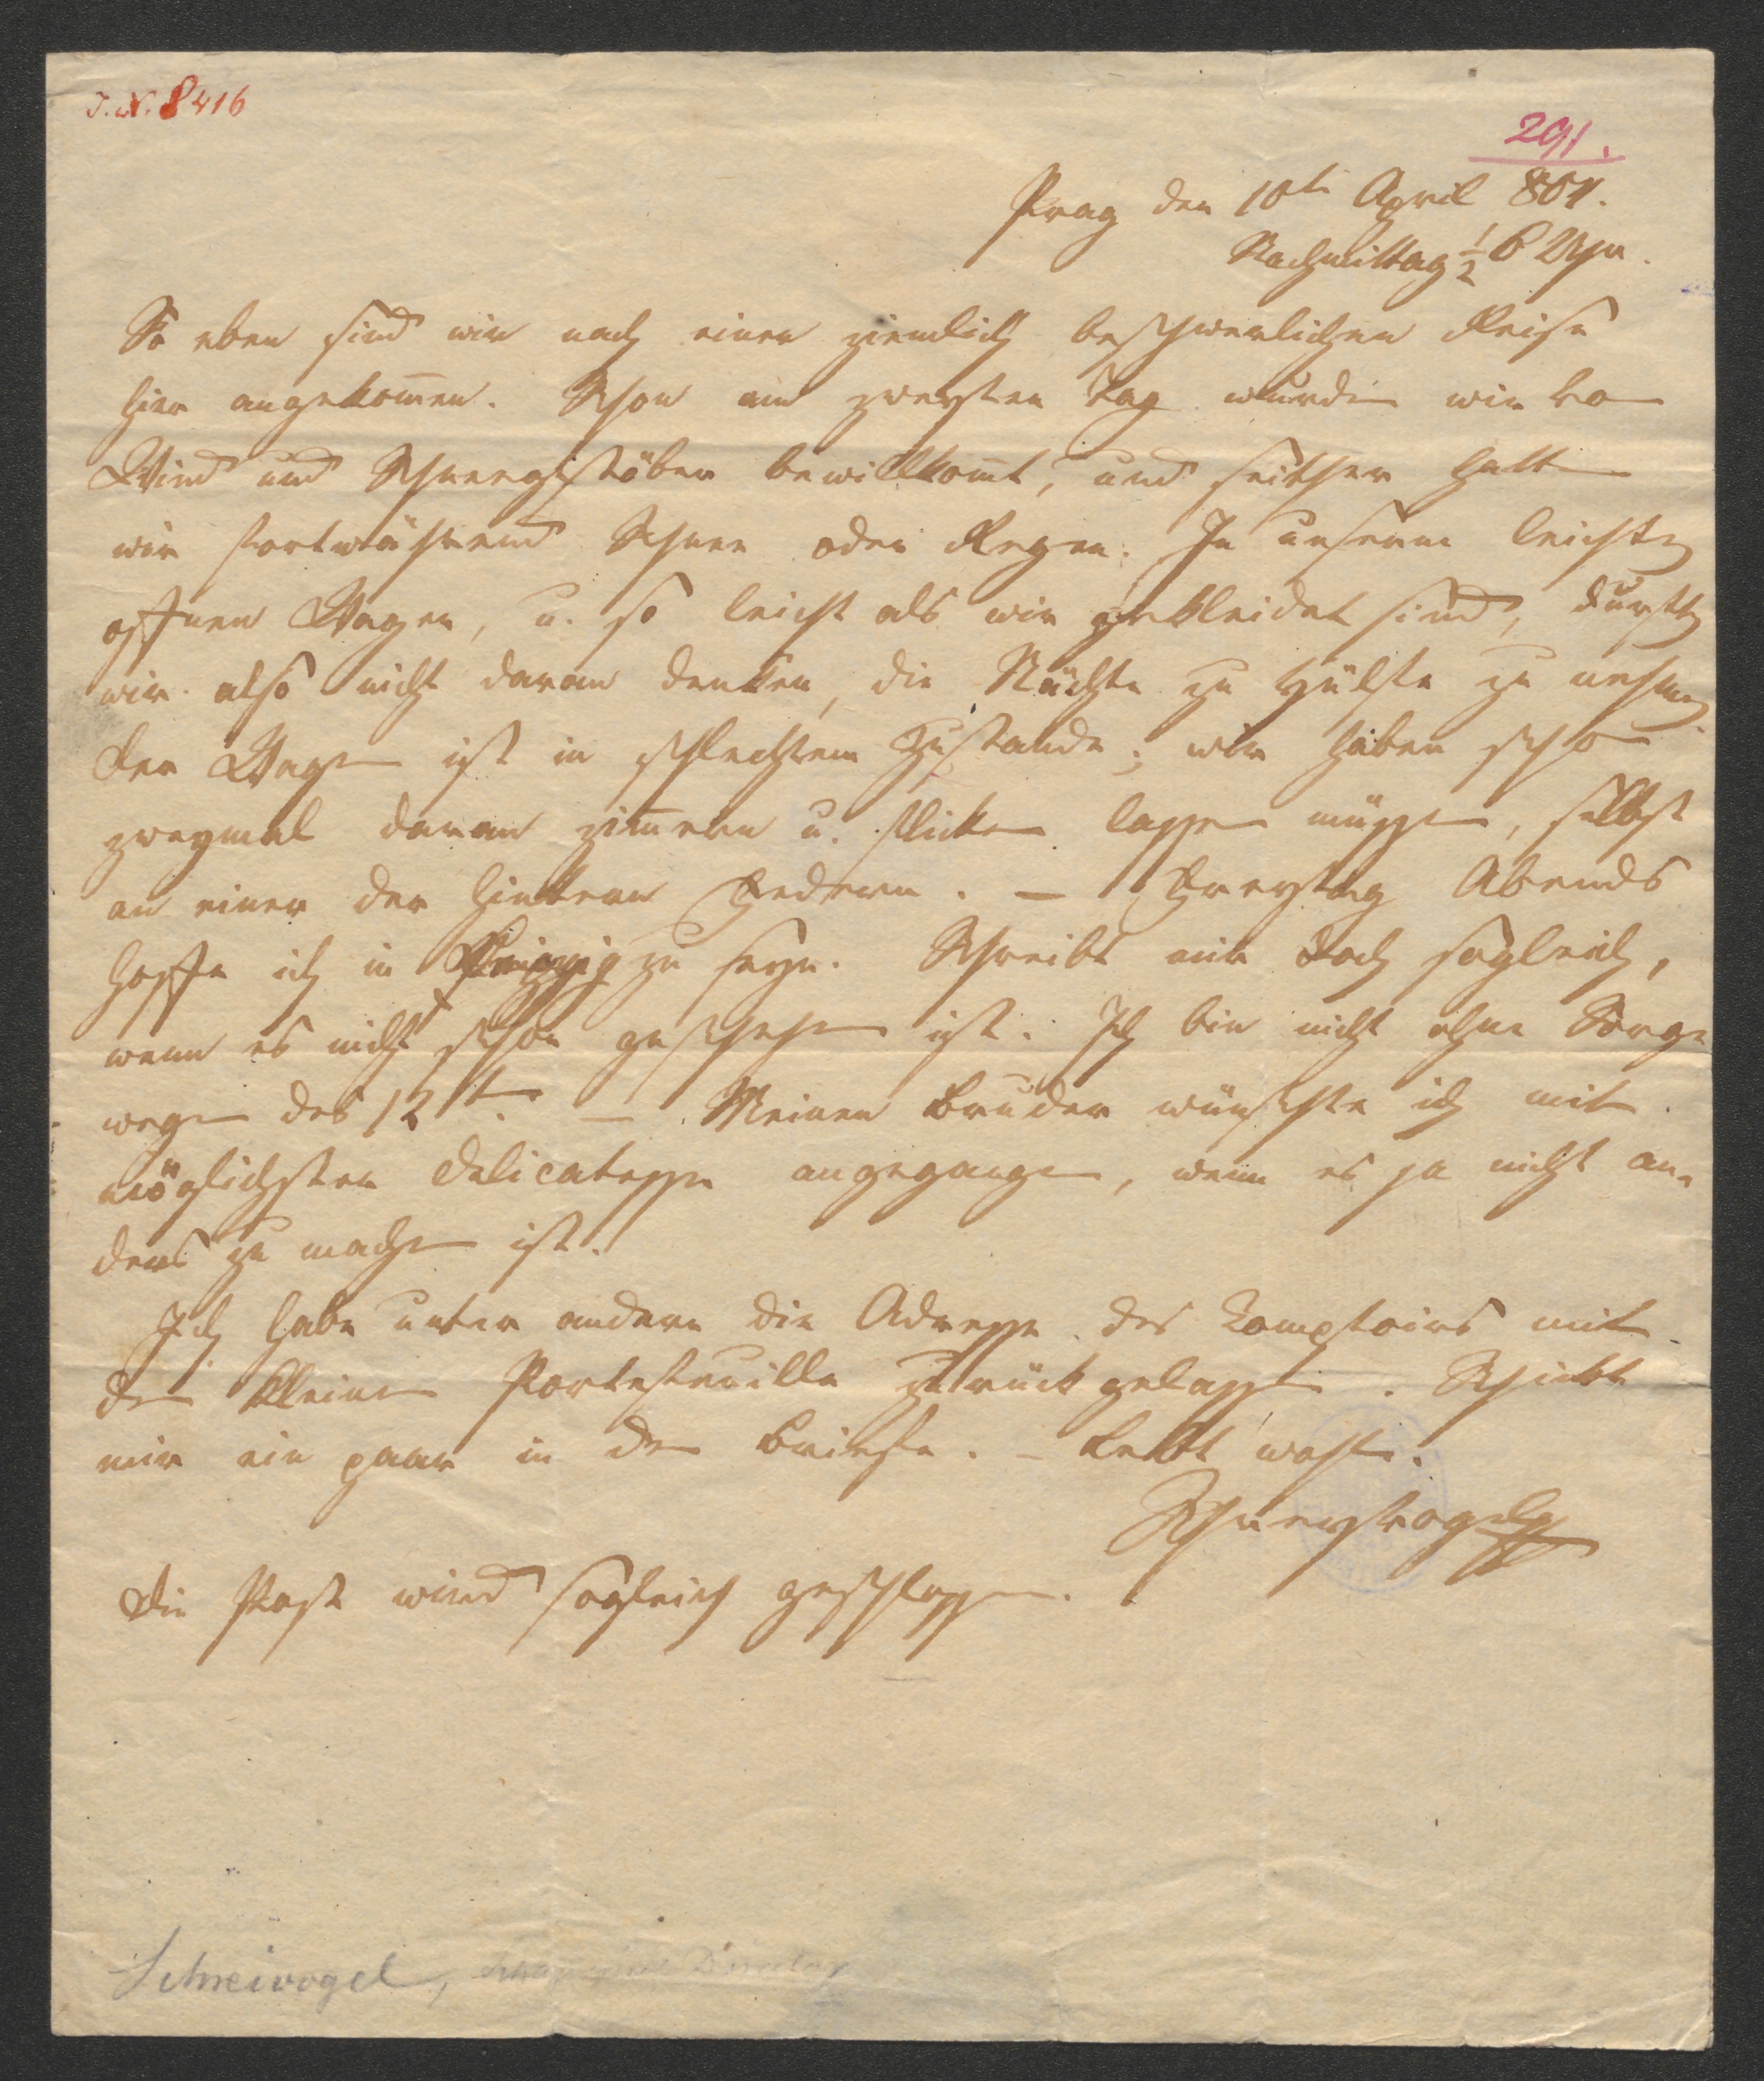 J. N. 8416
291.
Prag den 10t April 804.
Nachmittag ½ 6 Uhr.
So eben sind wir nach einer ziemlich beschwerlichen Reise
hier angekom̄en. Schon am zweyten Tag wurden wir von
Wind und Schneegestöber bewillkom̄t, und seither hatten
wir fortwährend Schnee oder Regen. In unserm leichten
offnen Wagen, u. so leicht als wir gekleidet sind, durften
wir also nicht daran denken, die Nächte zu Hülfe zu nehmen
Der Wagen ist in schlechtem Zustande; wir haben schon
zweymal daran zim̄ern u. flicken lassen müssen, selbst
an einer der hintern Federn. – Freytag Abends
hoffe ich in Leipzig zu seyn. Schreibt mir doch sogleich,
wenn es nicht schon geschehen ist. Ich bin nicht ohne Sorge
wegen des 12t. – Meinen Bruder wünschte ich mit
möglichster Delicatesse angegangen, wenn es ja nicht an-
ders zu machen ist.
Ich habe unter andern die Adresse des Comptoirs mit
dem kleinen Portefeuille zurück gelassen. Schickt
mir ein paar in den Briefe. – Lebt wohl.
Schreyvogel
Die Post wird sogleich geschlossen.
Schreivogel,